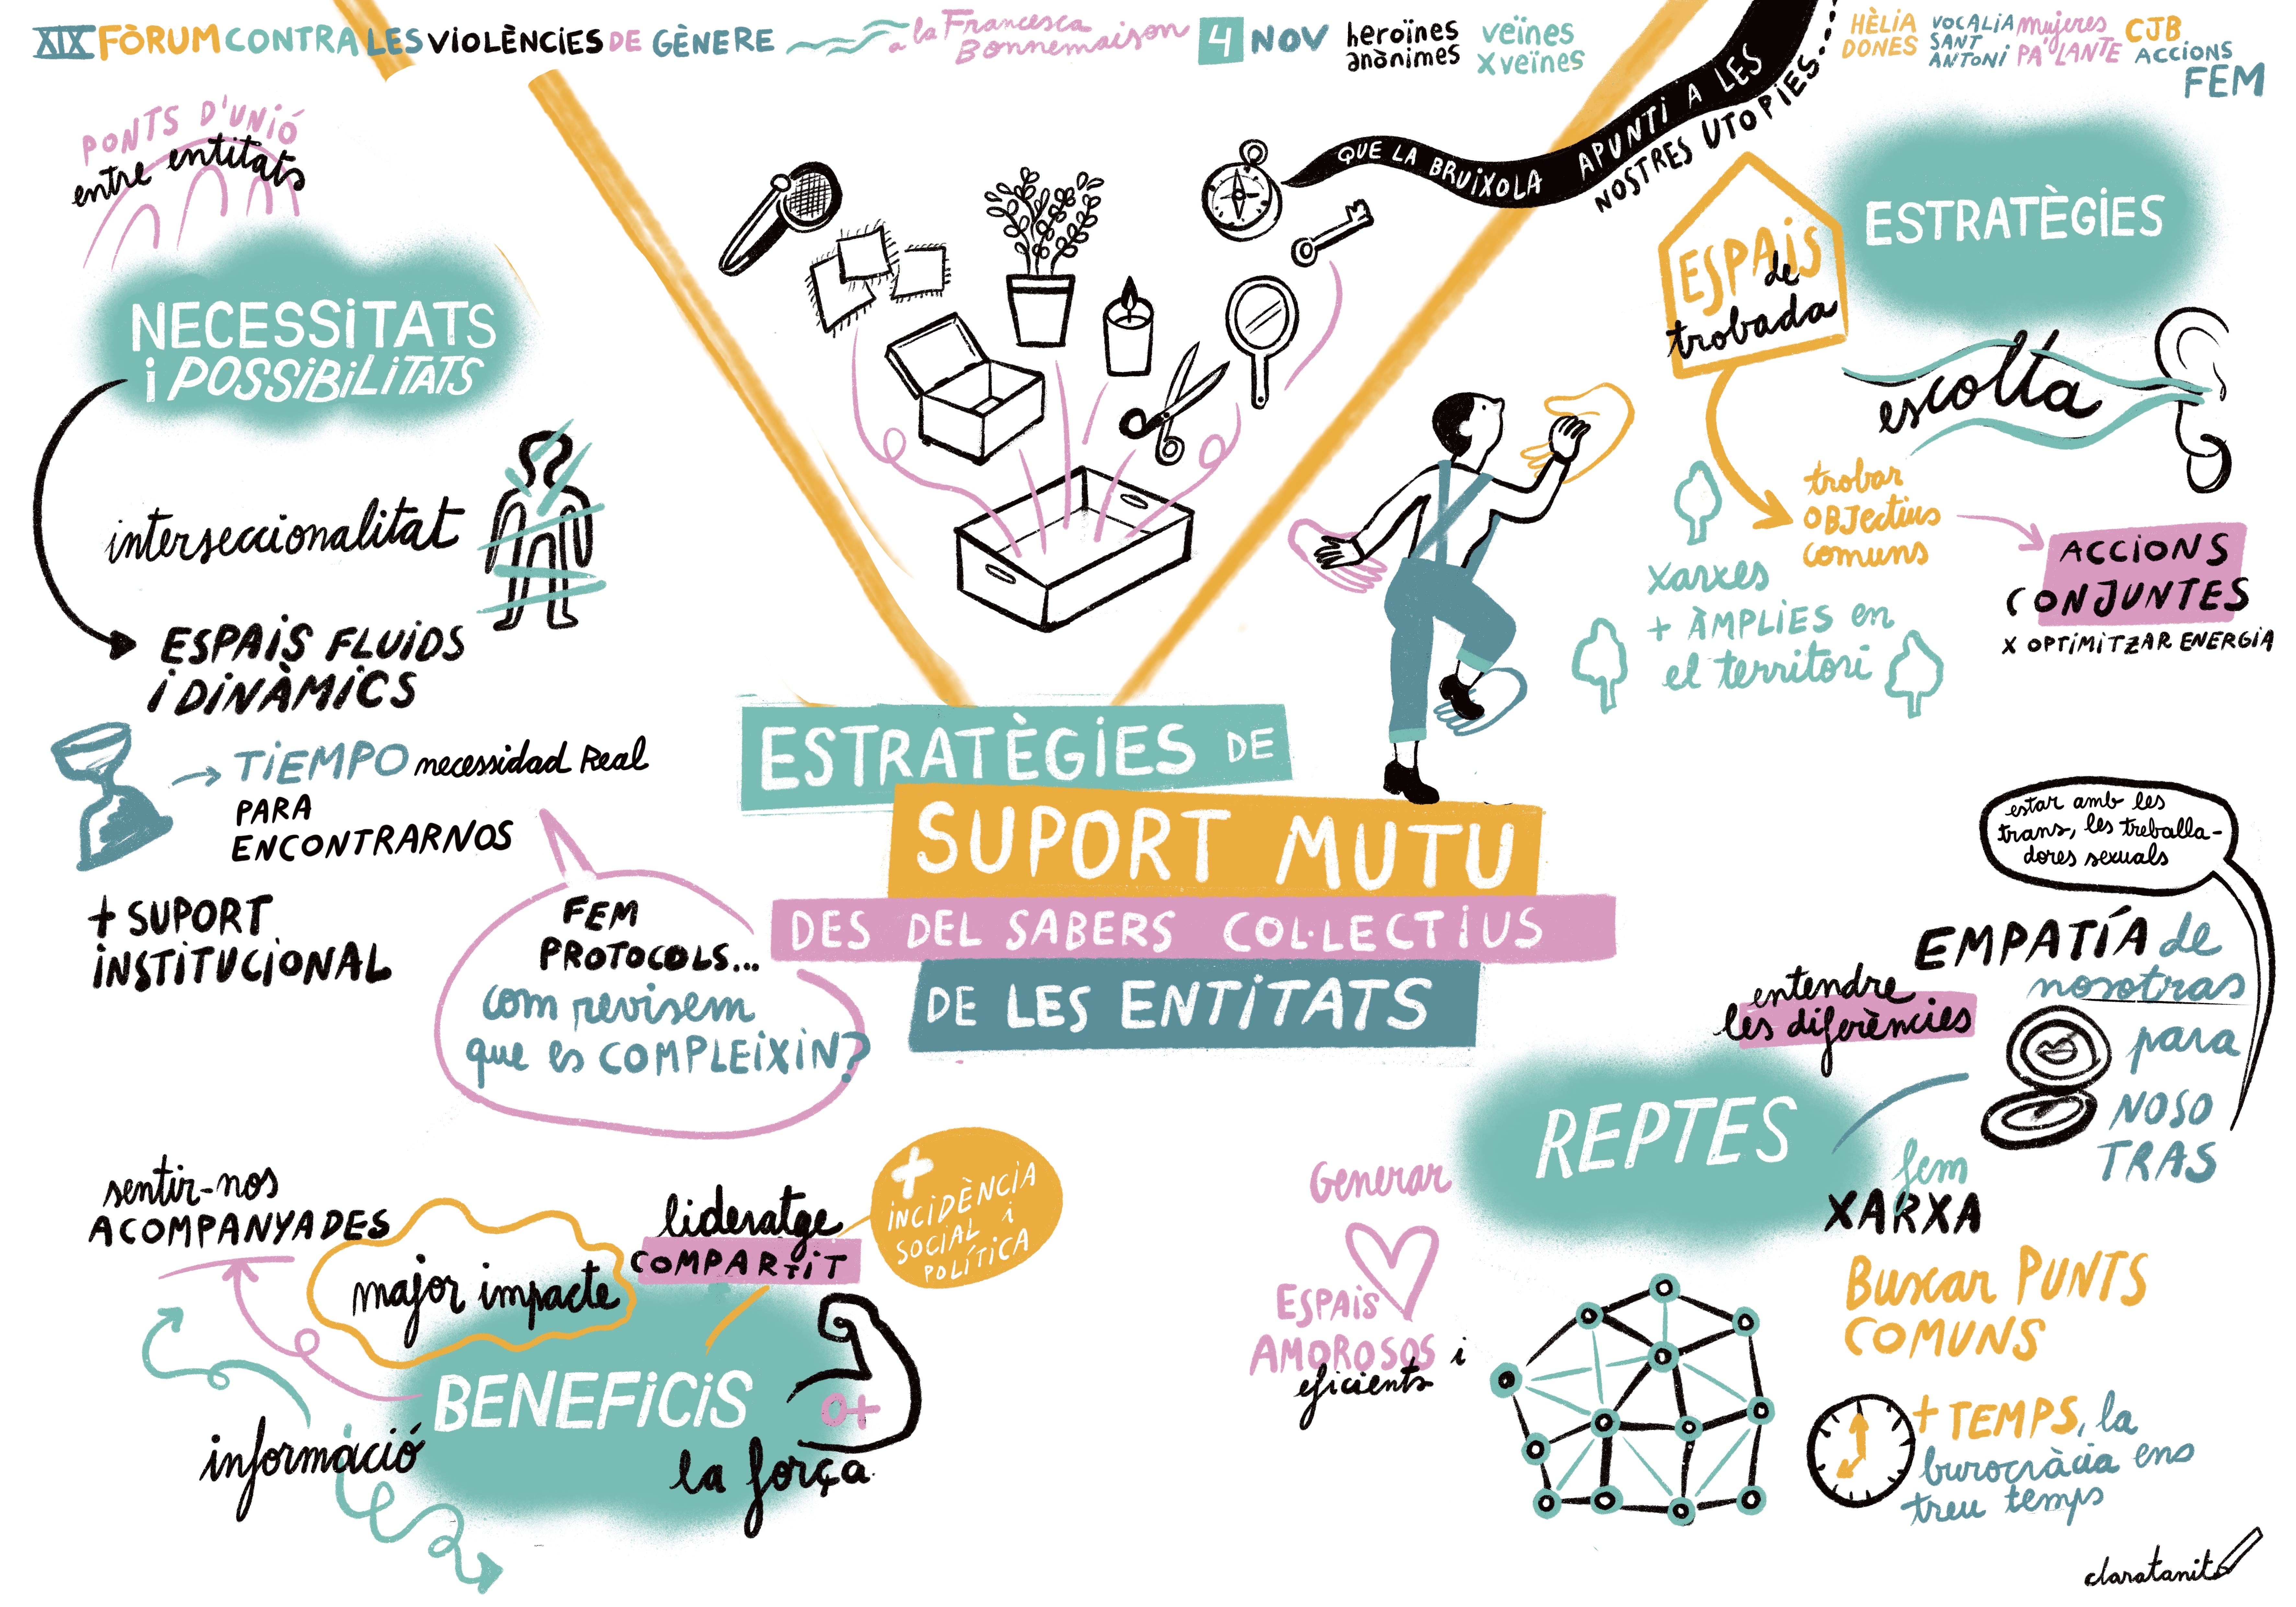 XIX FÒRUM CONTRA LES VIOLÈNCIES DE GÈNERE
a la Francesca
Bonnemaison
4 NOV
heroïnes
anònimes
veïnes
x veïnes
HÈLIA
DONES
VOCALIA
SANT
ANTONI
mujeres
PA'LANTE
CJB
ACCIONS
FEM
PONTS D'UNIÓ
entre entitats
NECESSITATS
i POSSIBILITATS
interseccionalitat
ESPAIS FLUIDS
i DINÀMICS
TIEMPO necessidad Real
PARA
ENCONTRARNOS
+ SUPORT
INSTITUCIONAL
FEM
PROTOCOLS...
com revisem
que es COMPLEIXIN?
QUE LA BRUIXOLA APUNTI A LES
NOSTRES UTOPIES...
ESTRATÈGIES DE
SUPORT MUTU
DES DEL SABERS COL·LECTIUS
DE LES ENTITATS
ESTRATÈGIES
ESPAIS
de
trobada
escolta
trobar
OBJectius
comuns
ACCIONS
CONJUNTES
X OPTIMITZAR ENERGIA
xarxes
+ ÀMPLIES en
el territori
estar amb les
trans, les treballa-
dores sexuals
EMPATÍA de
nosotras
para
NOSO
TRAS
entendre
les diferències
REPTES
fem
XARXA
Buscar PUNTS
COMUNS
+ TEMPS, la
burocràcia ens
treu temps
Generar
ESPAIS
AMOROSOS i
eficients
sentir-nos
ACOMPANYADES
major impacte
lideratge
COMPARTIT
+
INCIDÈNCIA
SOCIAL i
POLÍTICA
BENEFICIS
0+
informació
la força
claratanit